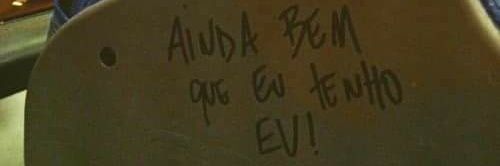 AINDA BEM
QUE EU TENHO
EU!